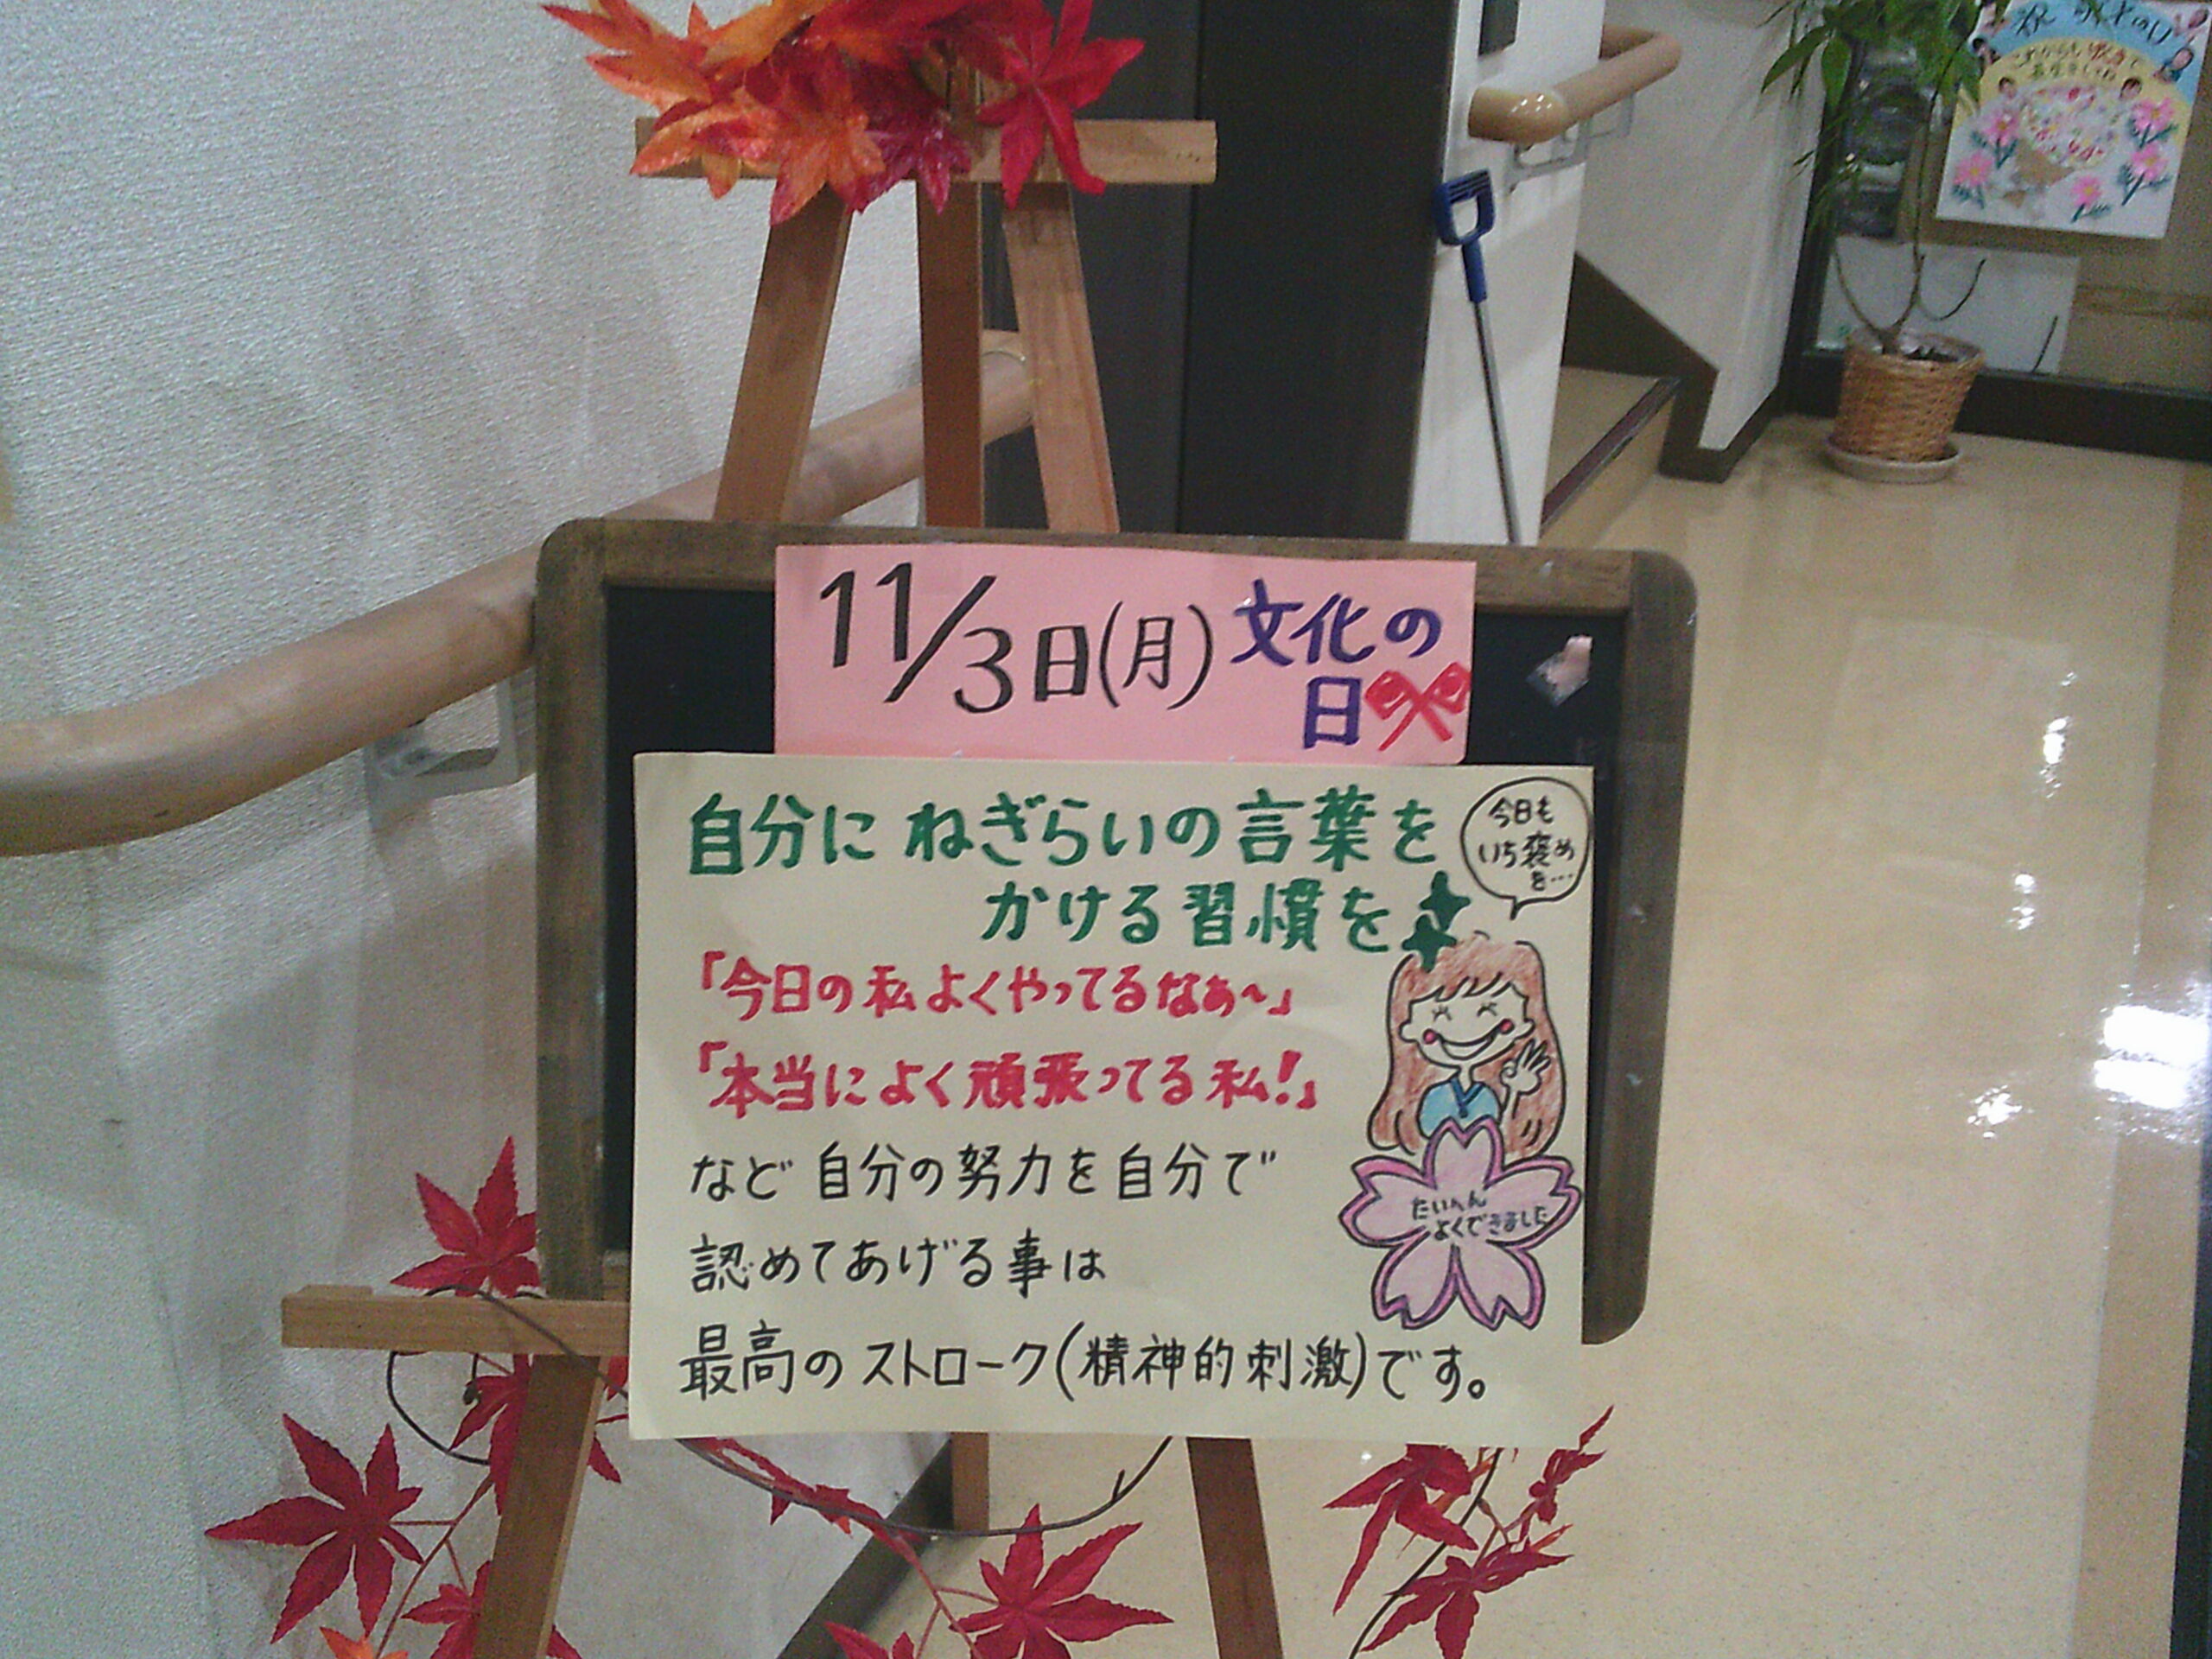 11/3日(月) 文化の
日
自分に ねぎらいの言葉を
かける習慣を
今日も
いち褒め
を…
「今日の私よくやってるなぁ〜」
「本当によく頑張ってる私!」
など 自分の努力を自分で
認めてあげる事は
最高のストローク(精神的刺激)です。
たいへん
よくできました